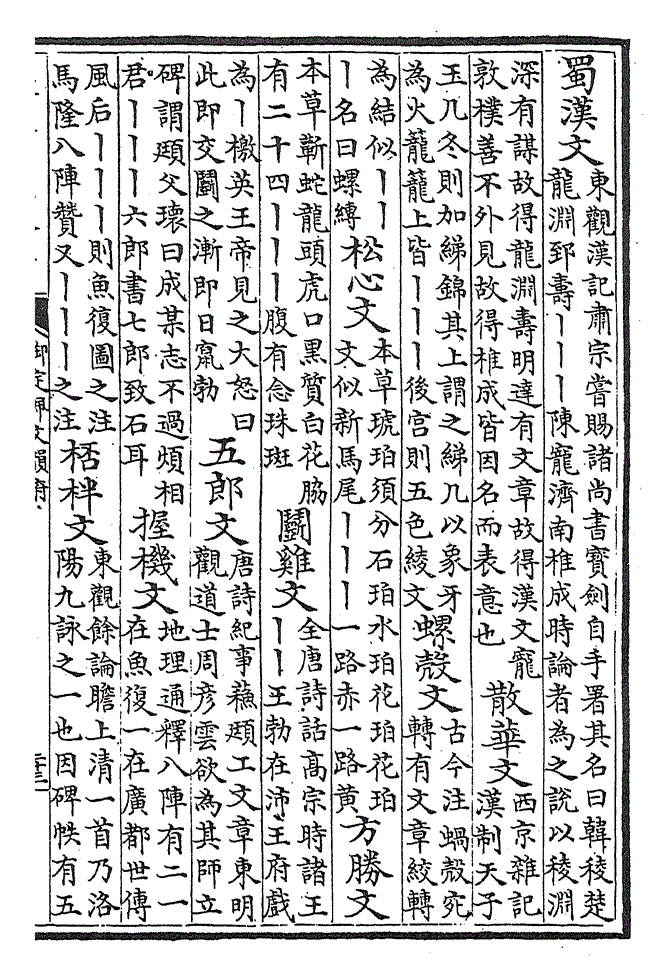 蜀漢文 東觀漢記肅宗嘗賜諸尚書寶劍自手署其名曰韓稜楚
龍淵郅壽丨丨丨陳寵濟南椎成時論者為之說以稜淵
深有謀故得龍淵壽明達有文章故得漢文寵
敦樸善不外見故得椎成皆因名而表意也
散華文 西京雜記
漢制天子
玉几冬則加綈錦其上謂之綈几以象牙
為火籠籠上皆丨丨丨後宫則五色綾文
螺殼文 古今注蝸殼宛
轉有文章絞轉
為結似丨丨
丨名曰螺縛
松心文 本草琥珀須分石珀水珀花珀花珀
文似新馬尾丨丨丨一路赤一路黃
方勝文
本草蘄蛇龍頭虎口黑質白花脇
有二十四丨丨丨腹有念珠斑
鬭雞文 全唐詩話高宗時諸王
丨丨王勃在沛王府戲
為丨檄英王帝見之大怒曰
此即交鬭之漸即日竄勃
五郎文 唐詩紀事蘇頲工文章東明
觀道士周彥雲欲為其師立
碑謂頲父瓌曰成某志不過煩相
君丨丨丨六郎書七郎致石耳
握機文 地理通釋八陣有二一
在魚復一在廣都世傳
風后丨丨丨則魚復圖之注
馬隆八陣贊又丨丨丨之注
桮柈文 東觀餘論瞻上清一首乃洛
陽九詠之一也因碑帙有五
御定佩文韻府